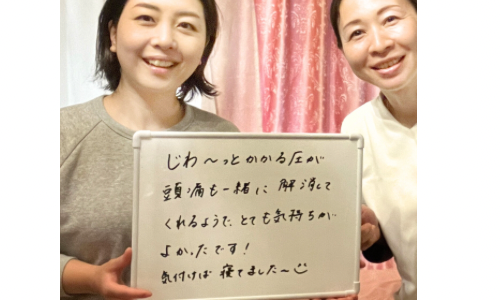 じわ〜っとかかる圧が
頭痛も一緒に解消して
くれるようで、とても気持ちが
よかったです!
気付けば寝てました〜☺